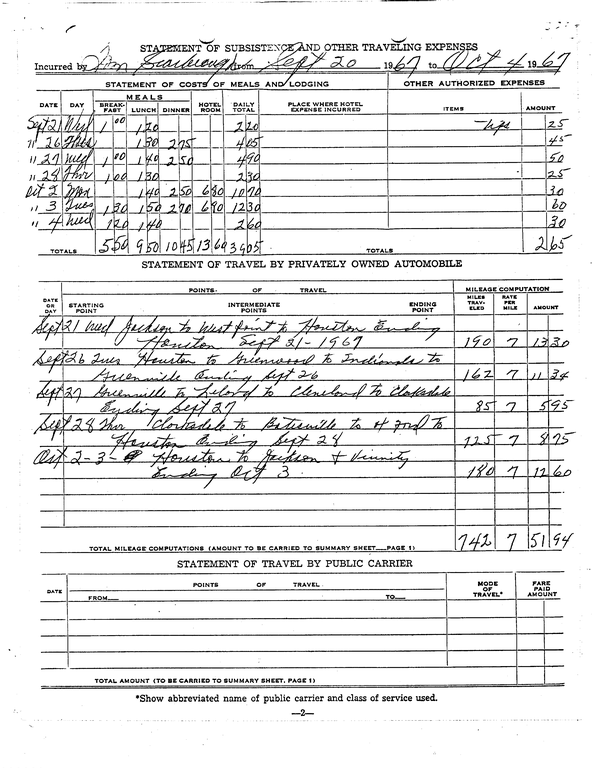 STATEMENT OF SUBSISTENCE AND OTHER TRAVELING EXPENSES
Incurred by Tom Scarbrough from Sept 20 1967 to Oct 4 1967
STATEMENT OF COSTS OF MEALS AND LODGING OTHER AUTHORIZED EXPENSES
MEALS
DATE DAY BREAK-FAST LUNCH DINNER HOTEL ROOM DAILY TOTAL PLACE WHERE HOTEL EXPENSE INCURRED ITEMS AMOUNT
Sept 21 Wed 1 00 1 20 2 20 Tips 25
" 26 Tues 1 30 2 75 4 05 45
" 27 Wed 1 00 1 40 2 50 4 90 50
" 28 Thr 1 00 1 30 2 30 25
Oct 2 Mon 1 40 2 50 6 80 10 70 30
" 3 Tues 1 30 1 50 2 70 6 80 12 30 60
" 4 Wed 1 20 1 40 2 60 30
TOTALS 5 50 9 50 10 45 13 60 39 05 TOTALS 2 65
STATEMENT OF TRAVEL BY PRIVATELY OWNED AUTOMOBILE
POINTS OF TRAVEL MILEAGE COMPUTATION
DATE OR DAY STARTING POINT INTERMEDIATE POINTS ENDING POINT MILES TRAV-ELED RATE PER MILE AMOUNT
Sept 21 Wed Jackson to West Point to Houston Ending
Houston Sept 21-1967 190 7 13 30
Sept 26 Tues Houston to Greenwood to Indianola to
Greenville Ending Sept 26 162 7 11 34
Sept 27 Greenville to Leland to Cleveland to Clarksdale
Ending Sept 27 85 7 5 95
Sept 28 Thr Clarksdale to Batesville to Oxford to
Houston Ending Sept 28 125 7 8 75
Oct 2-3- Houston to Jackson + Vicinity
Ending Oct 3 180 7 12 60
TOTAL MILEAGE COMPUTATIONS (AMOUNT TO BE CARRIED TO SUMMARY SHEET—PAGE 1) 742 7 51 94
STATEMENT OF TRAVEL BY PUBLIC CARRIER
DATE POINTS OF TRAVEL MODE OF TRAVEL* FARE PAID AMOUNT
FROM— TO—
TOTAL AMOUNT (TO BE CARRIED TO SUMMARY SHEET, PAGE 1)
*Show abbreviated name of public carrier and class of service used.
—2—